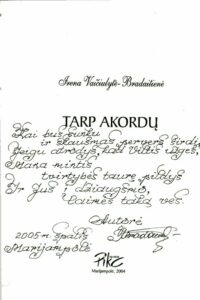 Irena Vaičiulytė-Bradaitienė
TARP AKORDŲ
Kai bus sunku
ir skausmas pervers širdį,
Jeigu atrodys, kad viltis užges,
Mana mintis
tvirtybės taurę pildys
Ir Jus į džiaugsmo,
laimės taką ves.
Autorė
2005 m. spalis
Marijampolė
Piko
Marijampolė, 2004